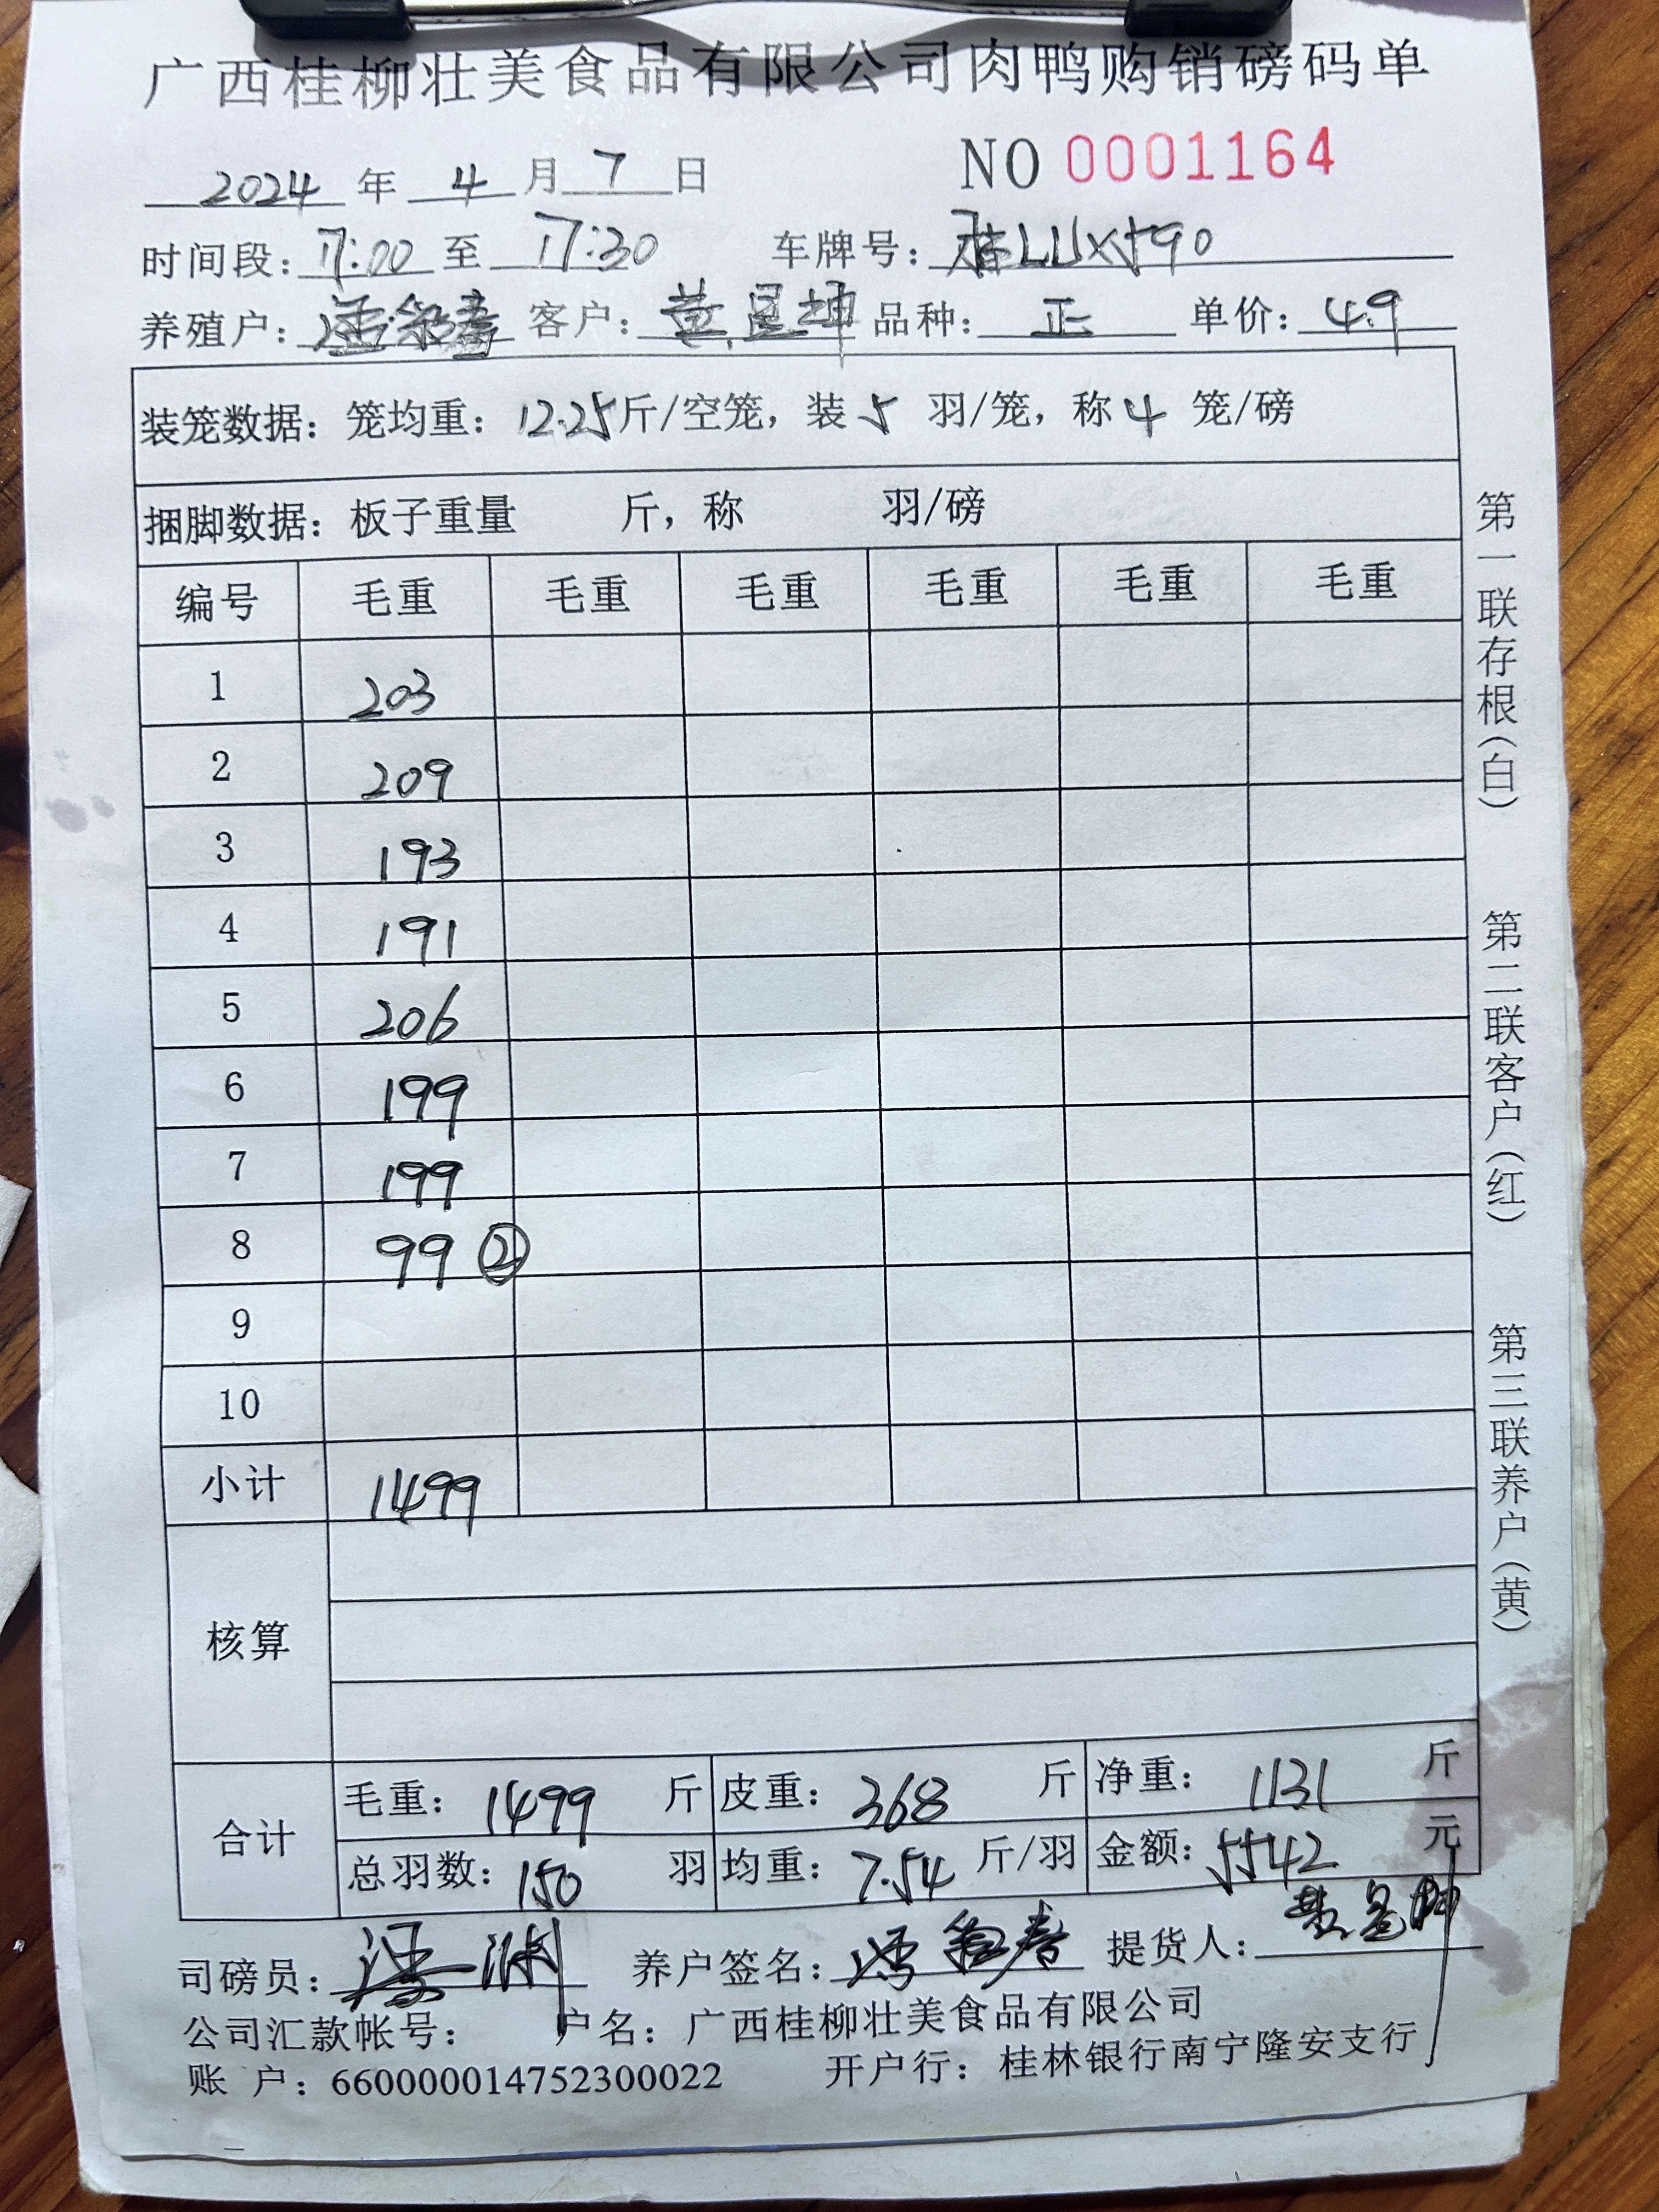 广西桂柳壮美食品有限公司肉鸭购销磅码单
2024 年 4 月 7 日 NO 0001164
时间段: 17:00 至 17:30 车牌号: 桂LUX590
养殖户: 客户: 黄昱坤 品种: 正 单价: 4.9
装笼数据: 笼均重: 12.25斤/空笼, 装 5 羽/笼, 称 4 笼/磅
捆脚数据: 板子重量 斤, 称 羽/磅
编号 毛重 毛重 毛重 毛重 毛重 毛重
1 203
2 209
3 193
4 191
5 206
6 199
7 199
8 99 ②
9
10
小计 1499
核算
合计 毛重: 1499 斤 皮重: 368 斤 净重: 1131 斤
总羽数: 150 羽 均重: 7.54 斤/羽 金额: 5542 元
司磅员: 养户签名: 提货人: 黄昱坤
公司汇款帐号: 户名: 广西桂柳壮美食品有限公司
账 户: 660000014752300022 开户行: 桂林银行南宁隆安支行
第一联存根(白)
第二联客户(红)
第三联养户(黄)